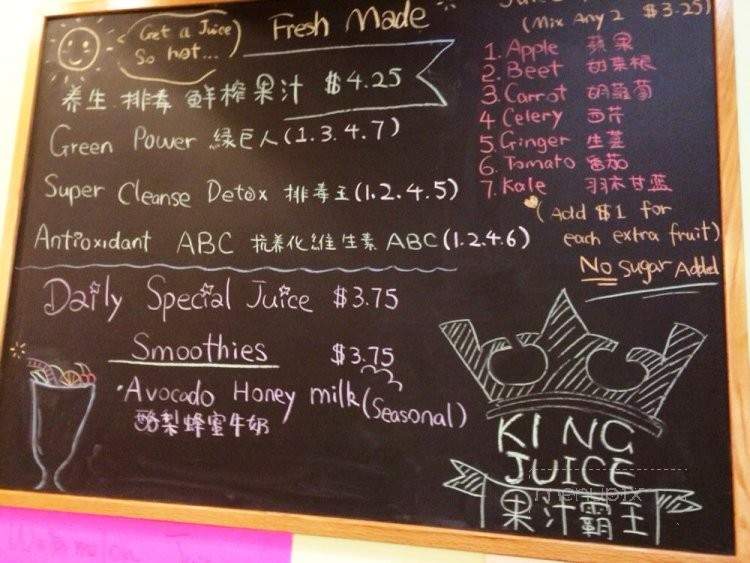 Get a Juice
So hot...
Fresh Made
养生 排毒 鲜榨果汁 $4.25
Green Power 緑巨人(1.3.4.7)
Super Cleanse Detox 排毒王(1.2.4.5)
Antioxidant ABC 抗养化維生素ABC(1.2.4.6)
Daily Special Juice $3.75
Smoothies $3.75
·Avocado Honey milk(Seasonal)
酪梨蜂蜜牛奶
(Mix Any 2 $3.25)
1. Apple 蘋果
2. Beet 甜菜根
3. Carrot 胡蘿蔔
4 Celery 西芹
5. Ginger 生薑
6. Tomato 番茄
7. Kale 羽衣甘蓝
(Add $1 for
each extra fruit)
No Sugar Added
KING
JUICE
menupix
果汁霸王